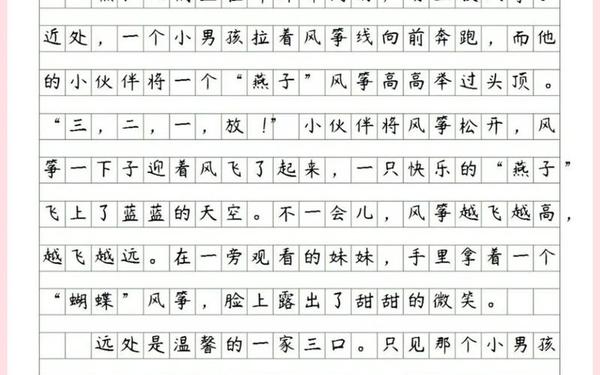 近处，一个小男孩拉着风筝线向前奔跑，而他
的小伙伴将一个“燕子”风筝高高举过头顶。
“三，二，一，放！”小伙伴将风筝松开，风
筝一下子迎着风飞了起来，一只快乐的“燕子”
飞上了蓝蓝的天空。不一会儿，风筝越飞越高，
越飞越远。在一旁观看的妹妹，手里拿着一个
“蝴蝶”风筝，脸上露出了甜甜的微笑。
远处是温馨的一家三口。只见那个小男孩